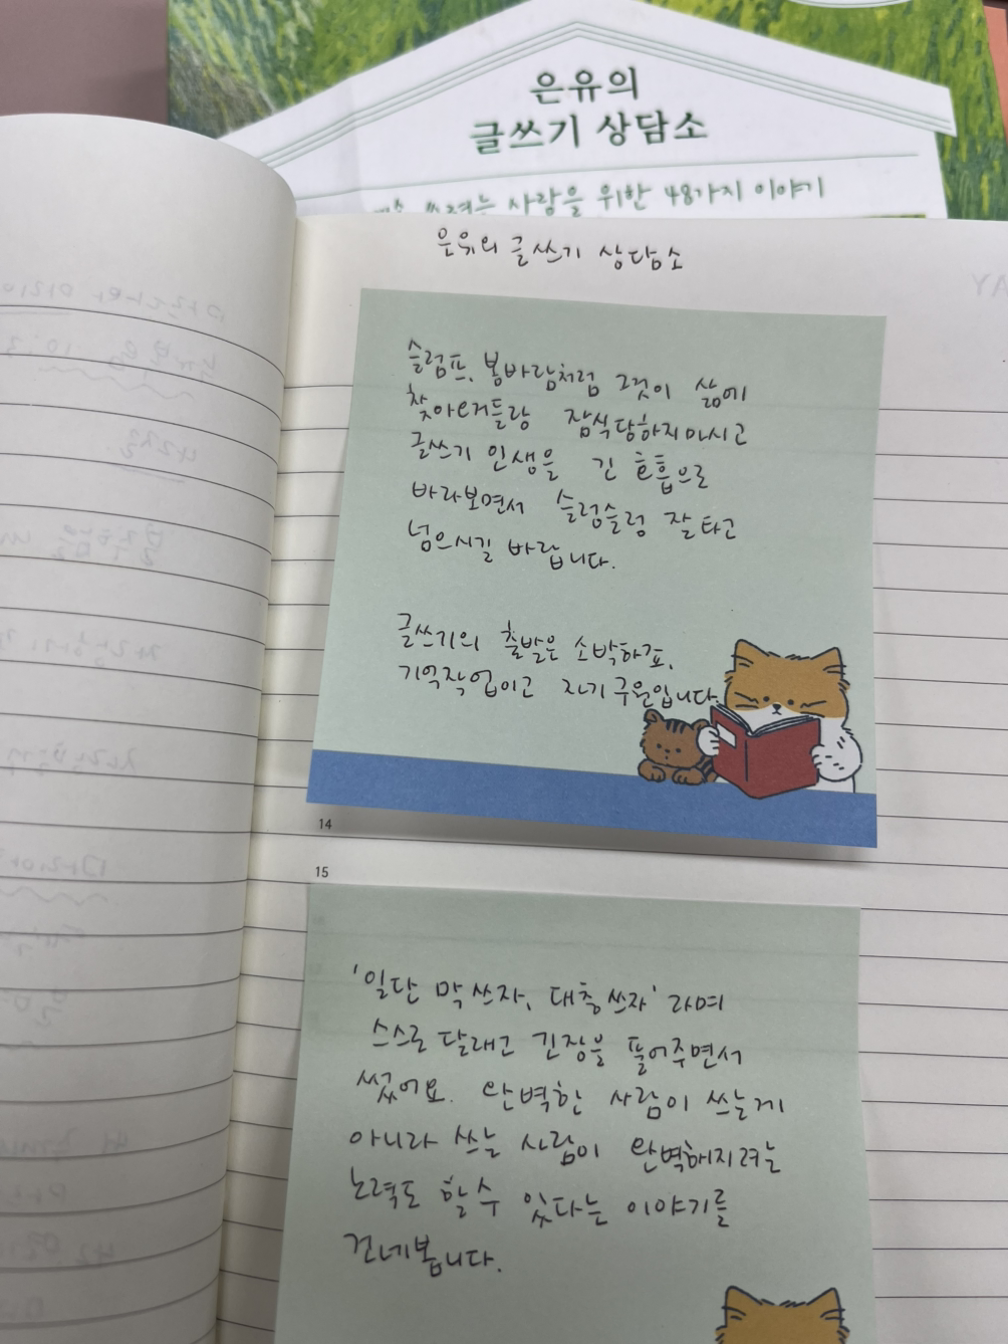 은유의
글쓰기 상담소
쓰려는 사람을 위한 48가지 이야기
은유의 글쓰기 상담소
슬럼프, 봄바람처럼 그것이 삶에
찾아오거들랑 잠식당하지마시고
글쓰기 인생을 긴 호흡으로
바라보면서 슬렁슬렁 잘 타고
넘으시길 바랍니다.
글쓰기의 출발은 소박하죠.
기억작업이고 자기구원입니다.
14
15
'일단 막 쓰자, 대충 쓰자' 라며
스스로 달래고 긴장을 풀어주면서
썼어요. 완벽한 사람이 쓰는게
아니라 쓰는 사람이 완벽해지려는
노력도 할 수 있다는 이야기를
건네봅니다.